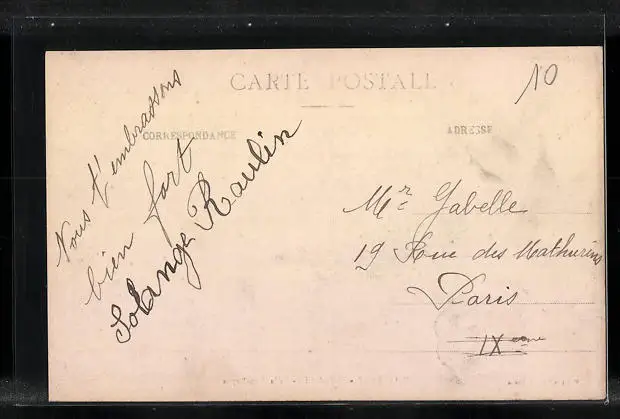 CARTE POSTALE
10
CORRESPONDANCE
ADRESSE
Nous t'embrassons
bien fort
Solange Raulin
Mr Gabelle
19 Rue des Mathurins
Paris
IXeme